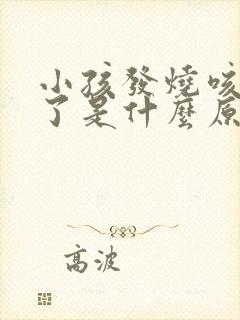 小孩發燒咳
了是什麼原
高波